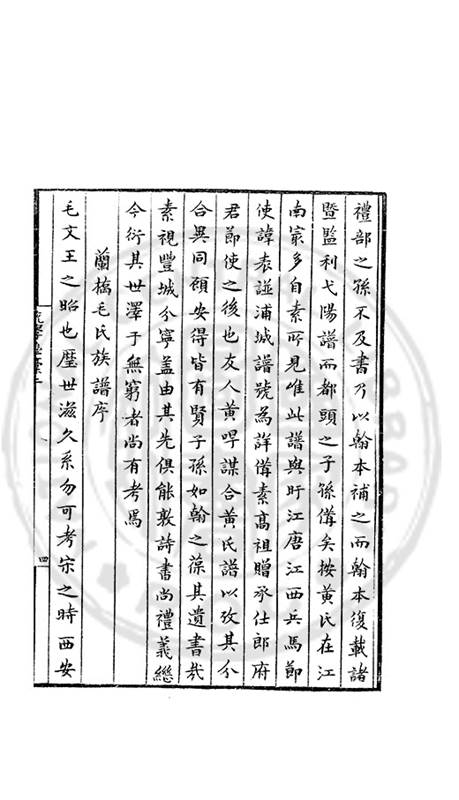 禮部之孫不及書乃以翰本補之而翰本復載諸
暨監利弋陽譜而都頭之子孫備矣按黃氏在江
南寔多自素所見唯此譜與盱江唐江西兵馬節
使諱表諡浦城譜號為詳備素高祖贈承仕郎府
君節使之後也友人黃㫤謀合黃氏譜以攷其分
合異同顧安得皆有賢子孫如翰之葆其遺書哉
素視豐城分寧蓋由其先俱能敦詩書尚禮義繼
今衍其世澤于無窮者尚有考焉
蘭橋毛氏族譜序
毛文王之昭也歷世滋久系勿可考宋之時西安
四